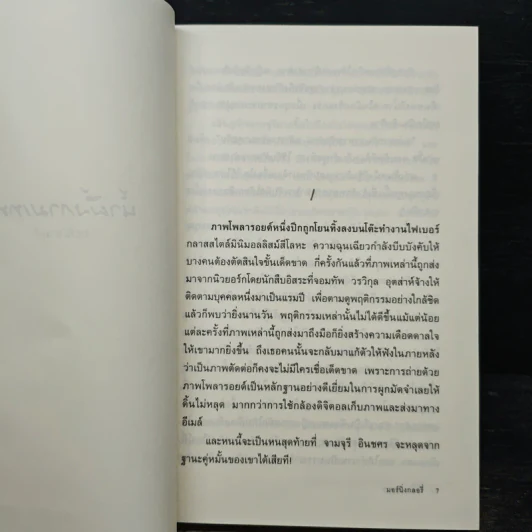 /
ภาพโพลารอยด์หนึ่งปึกถูกโยนทิ้งลงบนโต๊ะทำงานไฟเบอร์
กลาสสไตล์มินิมอลลิสม์สีโลหะ ความฉุนเฉียวกำลังบีบบังคับให้
บางคนต้องตัดสินใจขั้นเด็ดขาด กี่ครั้งกันแล้วที่ภาพเหล่านี้ถูกส่ง
มาจากนิวยอร์กโดยนักสืบอิสระที่จอมทัพ วรวิกุล อุตส่าห์จ้างให้
ติดตามบุคคลหนึ่งมาเป็นแรมปี เพื่อตามดูพฤติกรรมอย่างใกล้ชิด
แล้วก็พบว่ายิ่งนานวัน พฤติกรรมเหล่านั้นไม่ได้ดีขึ้นแม้แต่น้อย
แต่ละครั้งที่ภาพเหล่านี้ถูกส่งมาถึงมือก็ยิ่งสร้างความเดือดดาลใจ
ให้เขามากยิ่งขึ้น ถึงเธอคนนั้นจะกลับมาแก้ตัวให้ฟังในภายหลัง
ว่าเป็นภาพตัดต่อก็คงจะไม่มีใครเชื่อเด็ดขาด เพราะการถ่ายด้วย
ภาพโพลารอยด์เป็นหลักฐานอย่างดีเยี่ยมในการผูกมัดจำเลยให้
ดิ้นไม่หลุด มากกว่าการใช้กล้องดิจิตอลเก็บภาพและส่งมาทาง
อีเมล์
และหนนี้จะเป็นหนสุดท้ายที่ จามจุรี อินชศร จะหลุดจาก
ฐานะคู่หมั้นของเขาได้เสียที!
มอร์นิ่งกลอรี่ 7